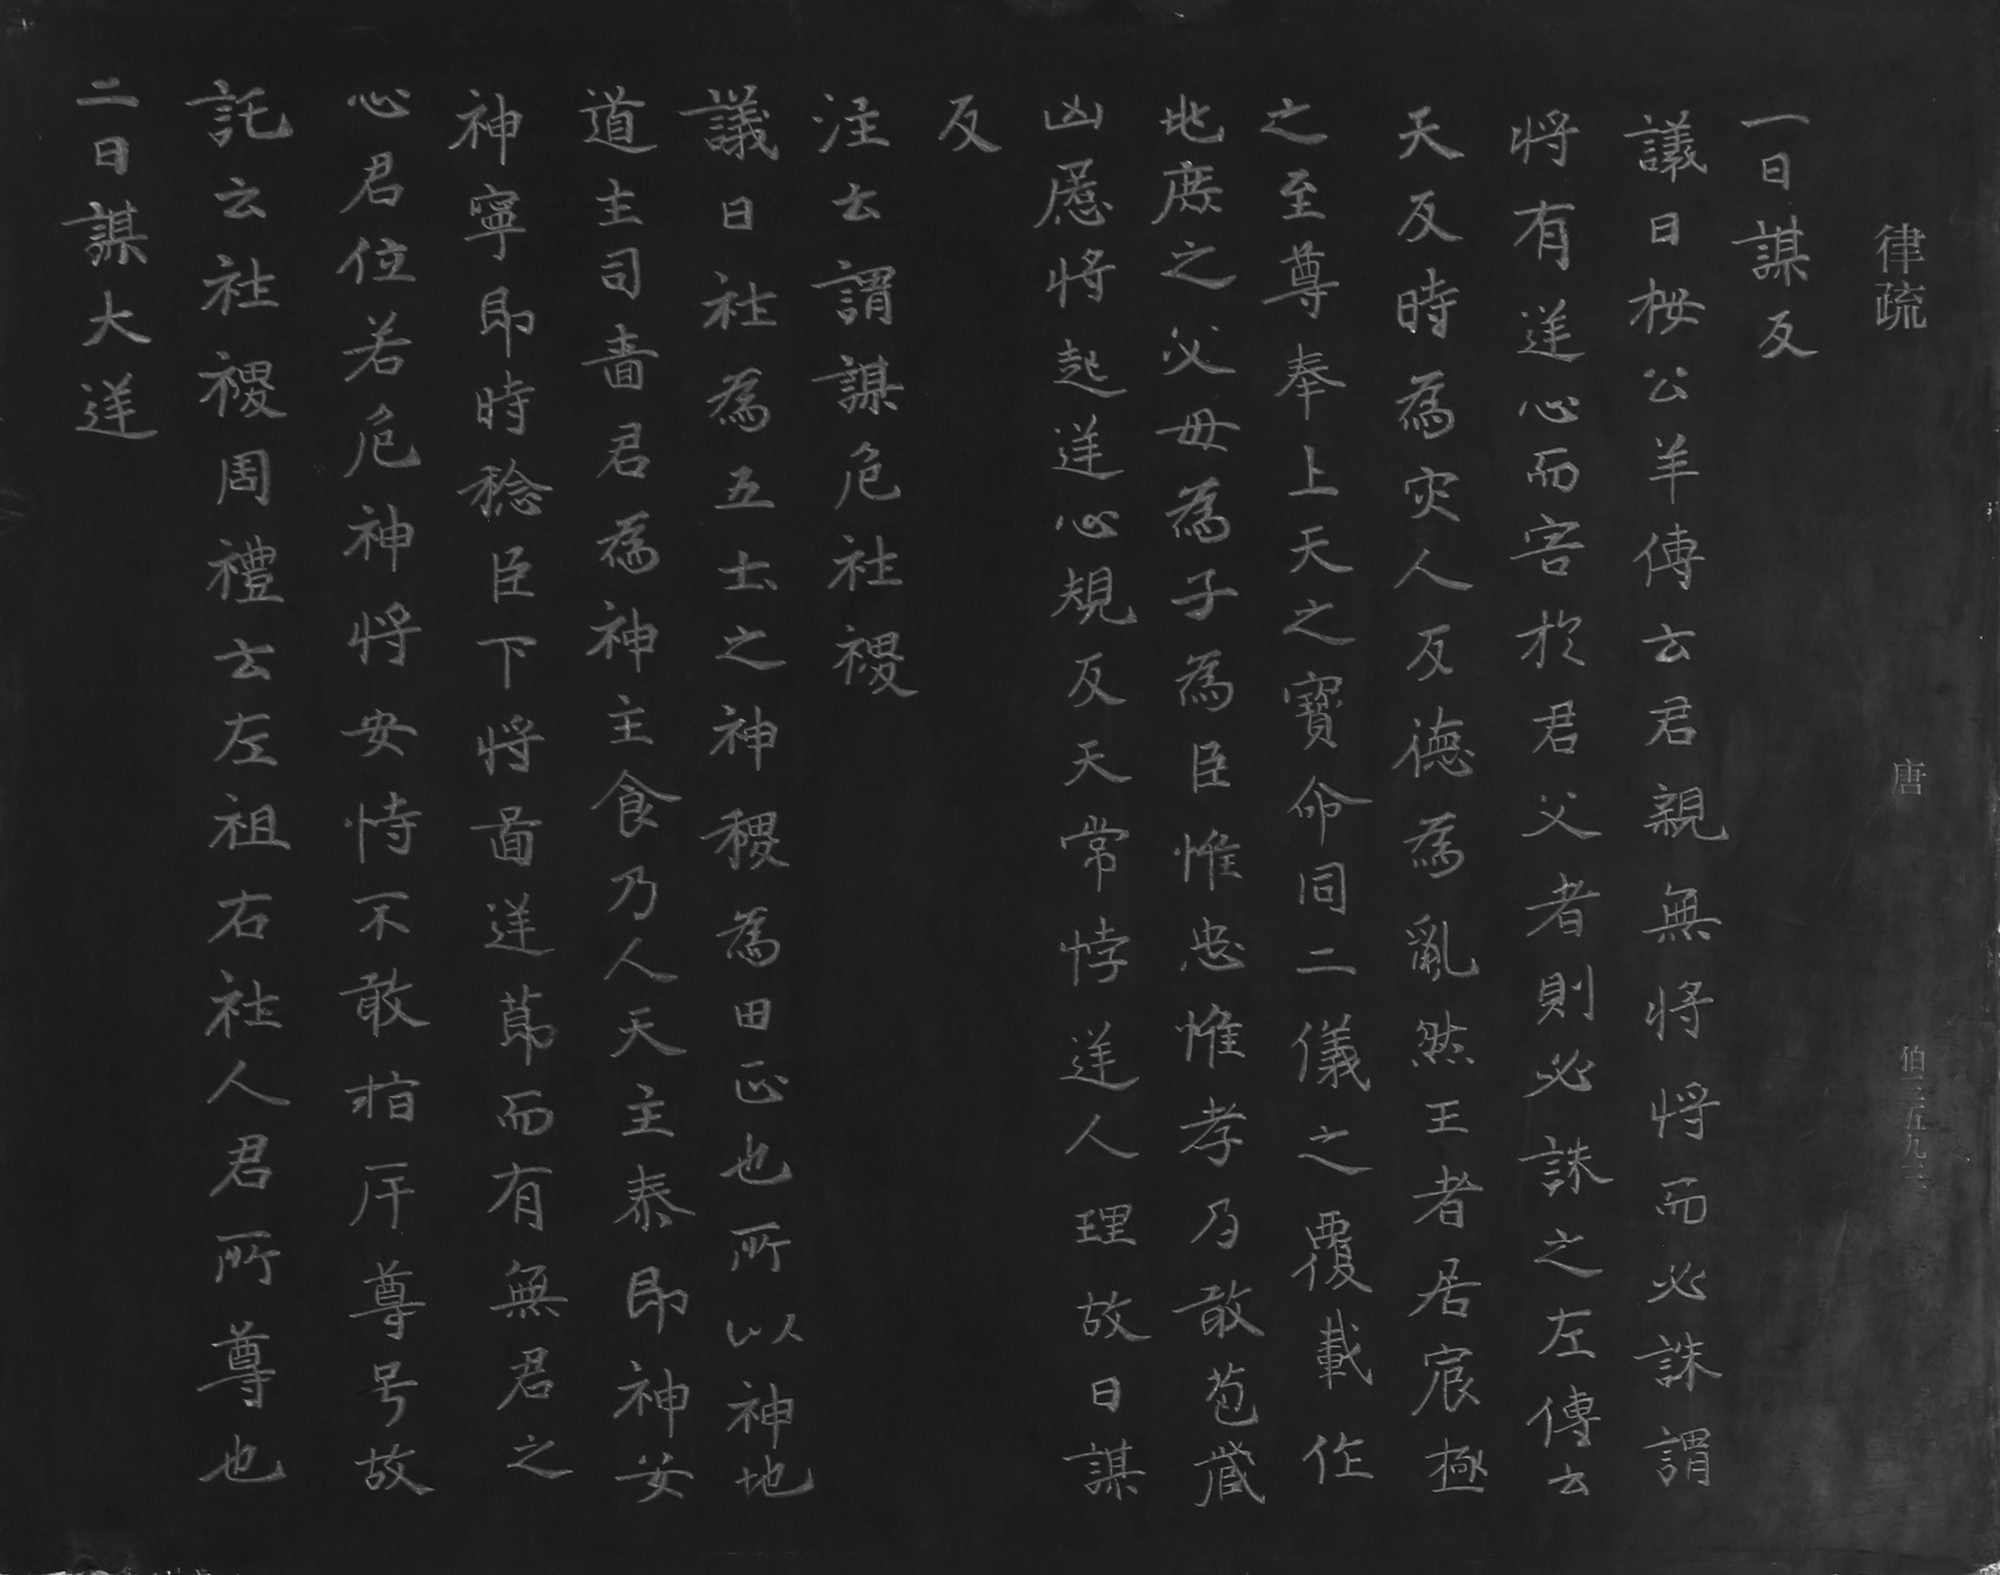 律疏　唐　伯三五九三
一曰謀反
議曰桉公羊傳云君親無將將而必誅謂
將有逆心而害於君父者則必誅之左傳云
天反時為灾人反德為亂然王者居宸極
之至尊奉上天之寶命同二儀之覆載作
兆庶之父母為子為臣惟忠惟孝乃敢苞藏
凶慝將起逆心規反天常悖逆人理故曰謀
反
注云謂謀危社稷
議曰社為五土之神稷為田正也所以神地
道主司嗇君為神主食乃人天主泰即神安
神寧即時稔臣下將啚逆莭而有無君之
心君位若危神將安恃不敢指斥尊号故
託云社稷周禮云左祖右社人君所尊也
二曰謀大逆